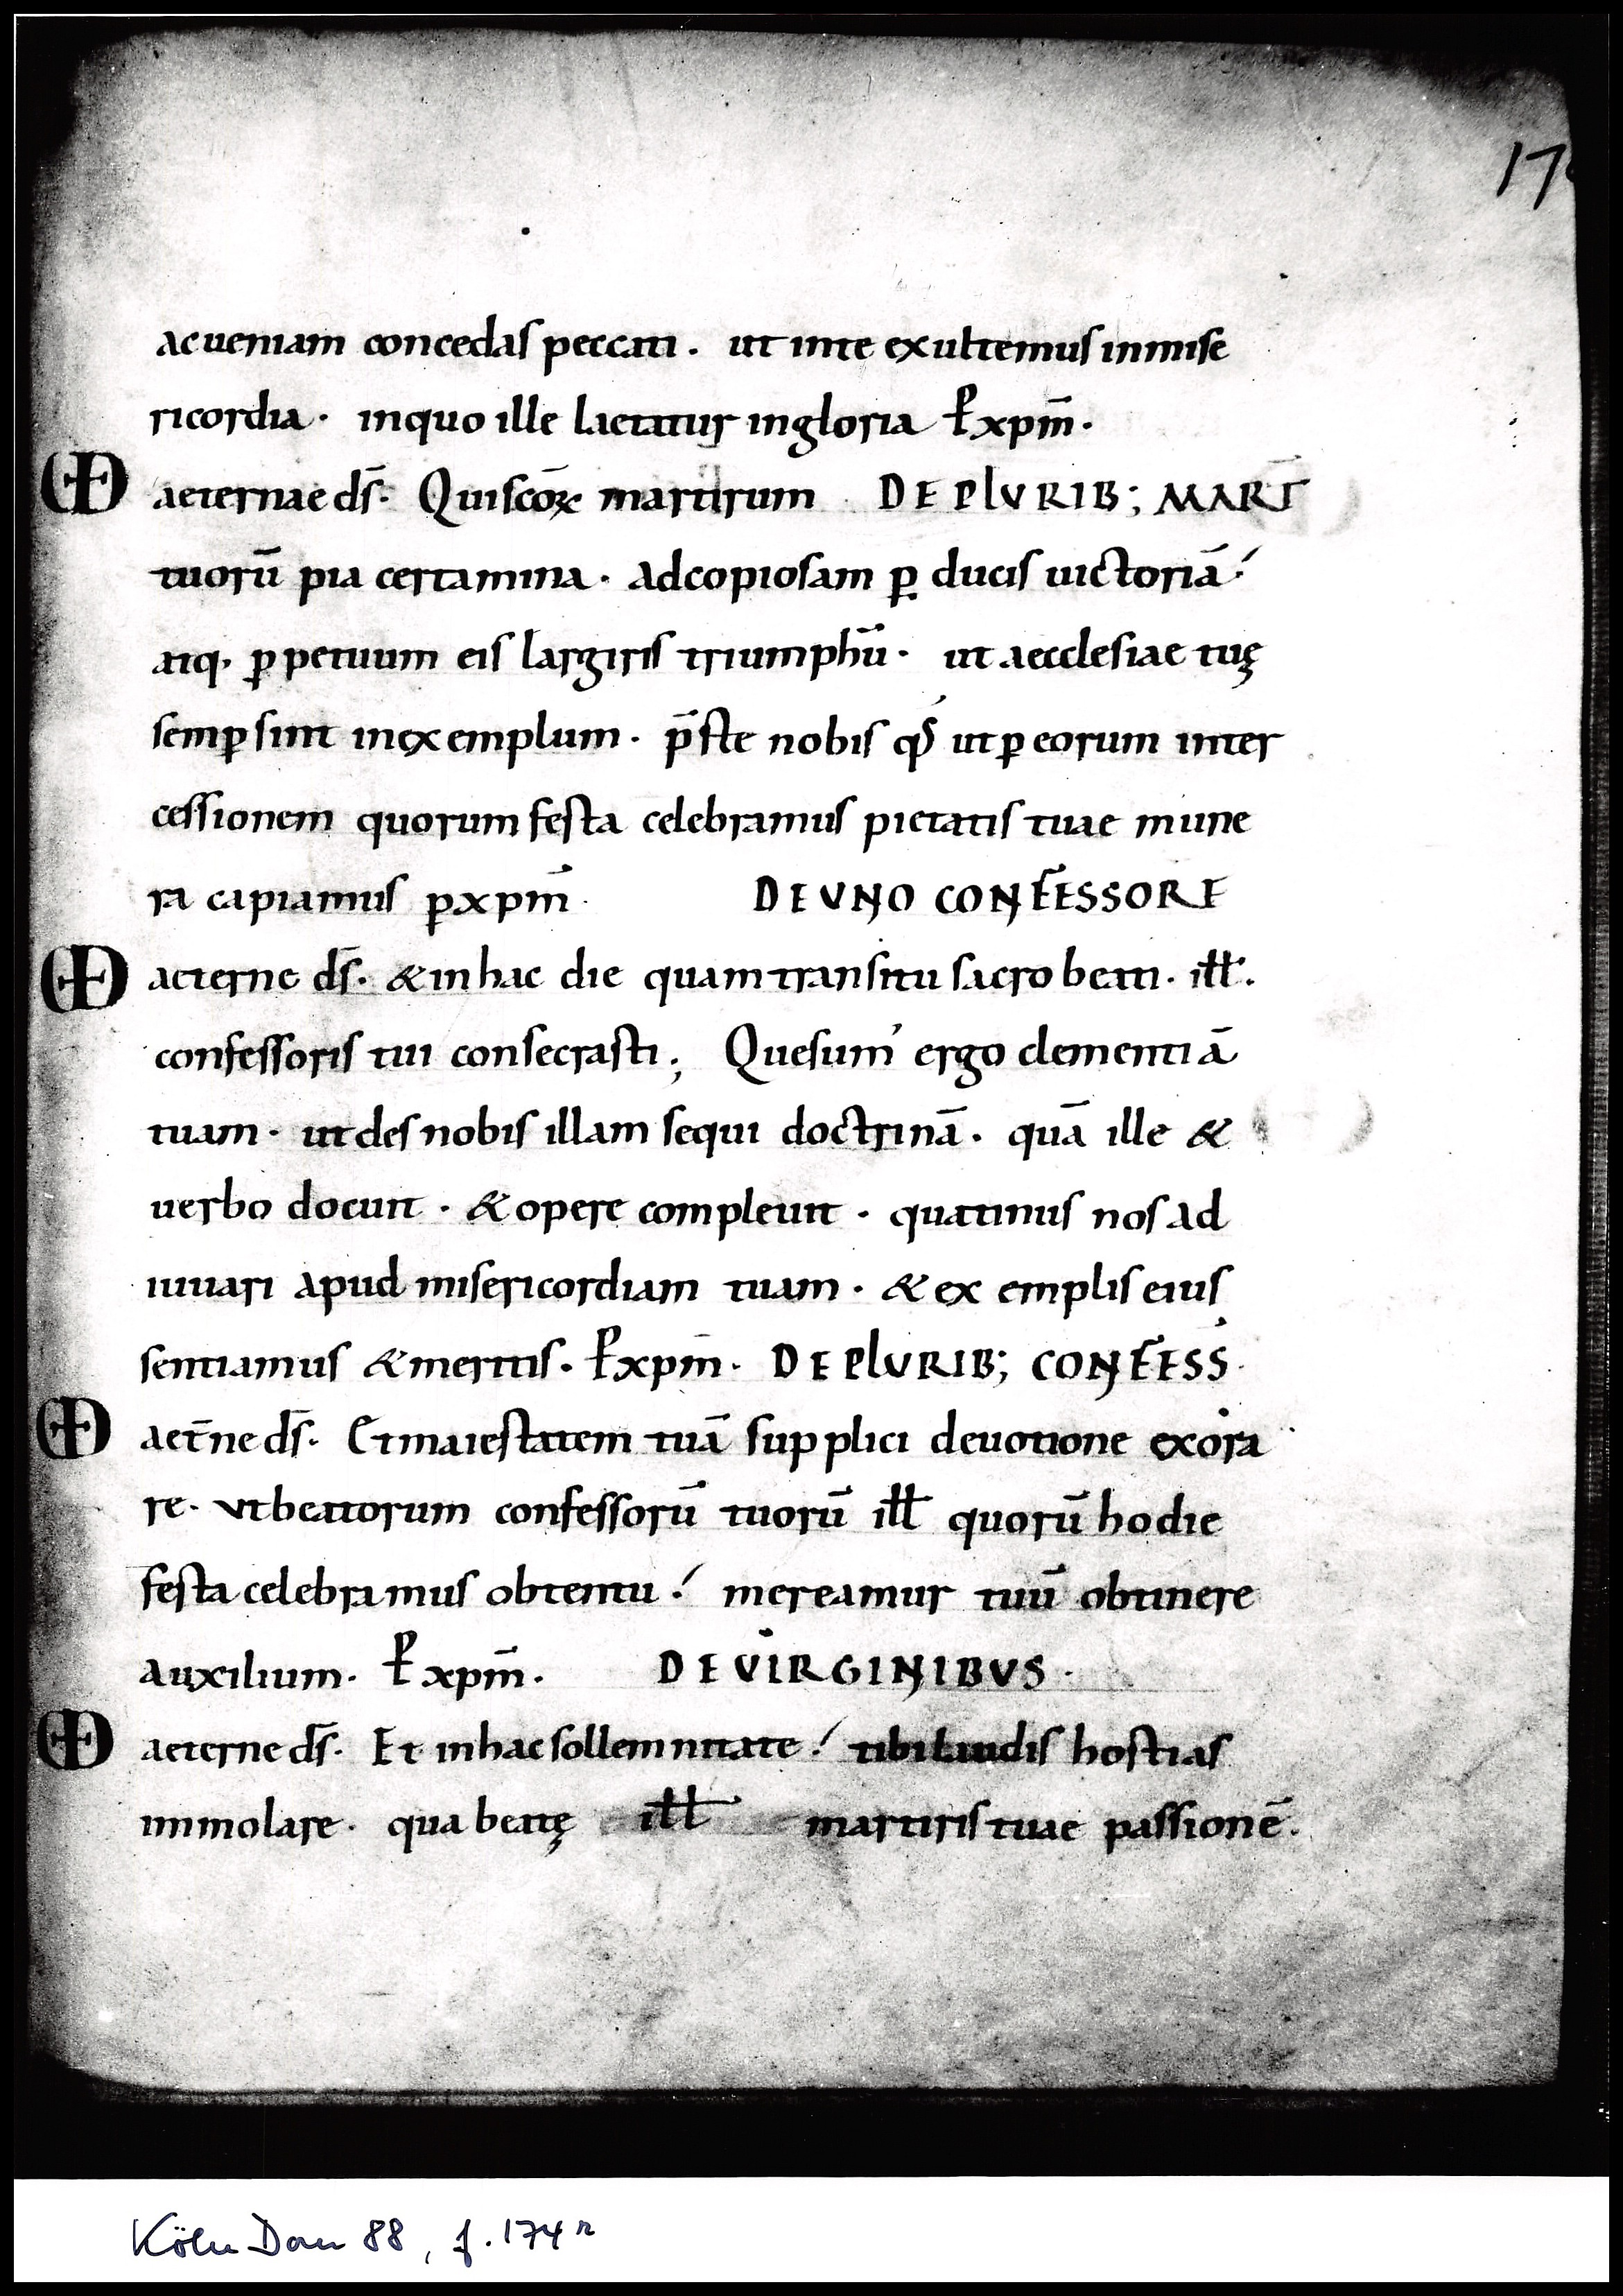 17
ac ueniam concedas peccati. ut in te exultemus in mise
ricordia. in quo ille laetatur in gloria P xpm̄.
VD aeternae ds̄. Qui sc̄oꝝ martirum DE PLURIB; MART̄
tuorū pia certamina. ad copiosam ꝑducis uictoriā.
atq. ꝑpetuum eis largiris triumphū. ut aecclesiae tuę
semꝑ sint in exemplum. p̄ste nobis qs̄ ut ꝑ eorum inter
cessionem quorum festa celebramus pietatis tuae mune
ra capiamus ꝑ xpm̄. DE UNO CONFESSORE
VD aeterne ds̄. & in hac die quam transitu sacro beati. ill̄.
confessoris tui consecrasti; Quesum' ergo clementiā
tuam. ut des nobis illam sequi doctrinā. quā ille &
uerbo docuit. & opere compleuit. quatinus nos ad
iuuari apud misericordiam tuam. & exemplis eius
sentiamus & meritis. P xpm̄. DE PLURIB; CONFESS.
VD aet̄ne ds̄. Et maiestatem tuā supplici deuotione exora
re. ut beatorum confessorū tuorū ill̄ quorū hodie
festa celebramus obtentu. mereamur tuū obtinere
auxilium. P xpm̄. DE UIRGINIBUS.
VD aeterne ds̄. Et in hac sollemnitate. tibi laudis hostias
immolare. qua beatę ill̄ martiris tuae passionē.
Köln Dom 88, f. 174r